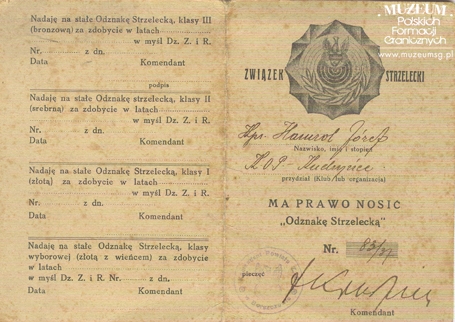 Nadaję na stałe Odznakę Strzelecką, klasy III
(bronzową) za zdobycie w latach
w myśl Dz. Z. i R.
Nr. z dn.
Data Komendant
podpis
Nadaję na stałe Odznakę strzelecką, klasy II
(srebrną) za zdobycie w latach
w myśl Dz. Z. i R.
Nr. z dn.
Data Komendant
Nadaję na stałe Odznakę Strzelecką, klasy I
(złotą) za zdobycie w latach
w myśl Dz. Z. i R.
Nr. z dn.
Data Komendant
Nadaję na stałe Odznakę Strzelecką, klasy
wyborowej (złotą z wieńcem) za zdobycie
w latach
w myśl Dz. Z. i R. Nr. z dn.
Data Komendant
MUZEUM
Polskich
Formacji
Granicznych
www.muzeumsg.pl
ZWIĄZEK STRZELECKI
Józef
Nazwisko, imię i stopień
KOP
przydział (Klub lub organizacja)
MA PRAWO NOSIĆ
"Odznakę Strzelecką"
Nr. 83/37
pieczęć
Komendant